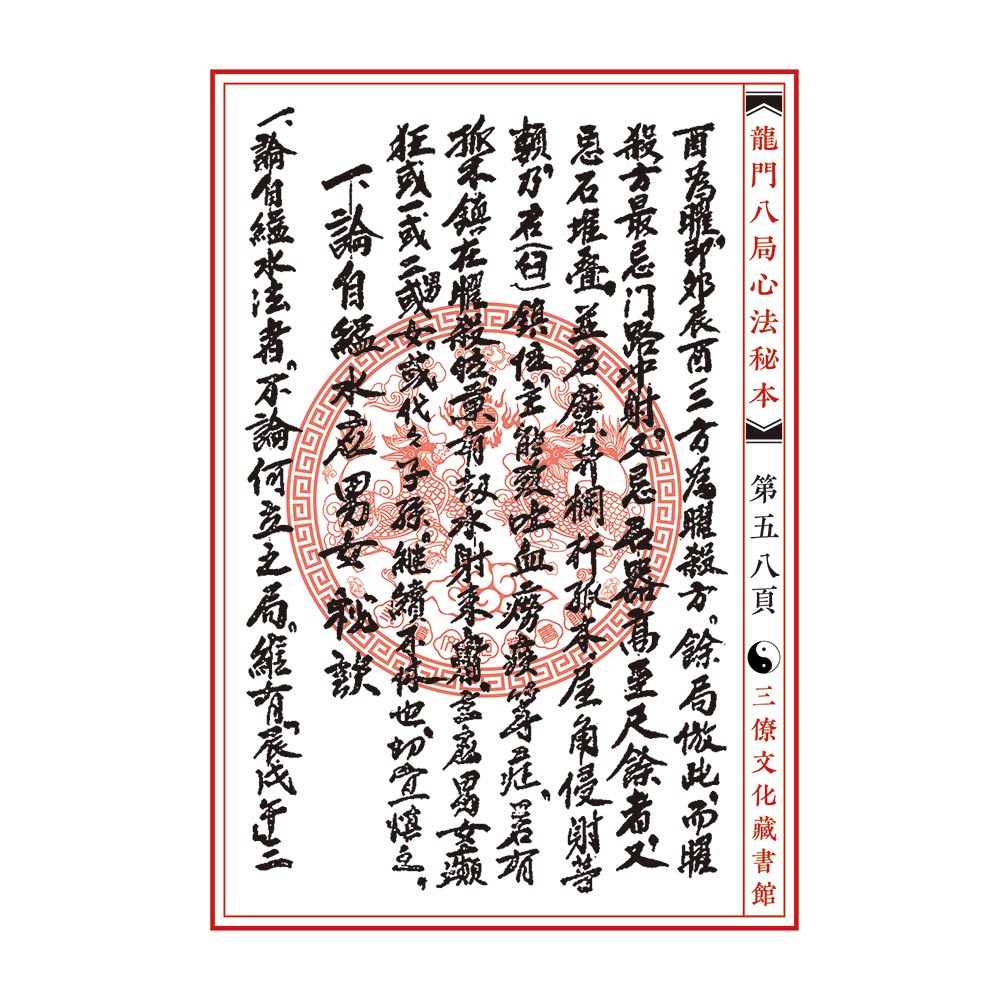 《龍門八局心法秘本》
第五八頁
三僚文化藏書館
酉為曜，即卯辰酉三方為曜殺方。餘局倣此，而曜
殺方最忌门路冲射，又忌石器高至尺餘者，又
忌石堆疊，並石磨、井欄杆孤木、屋角侵射等
類，乃石（臼）鎮位，主能致吐血癆痰等症，男若有
孤木鎮在曜殺位，葉有
水射來
男女癲
狂或一或二或男女。或代々子孫，繼續不休也，切宜慎之。
下論自縊水应男女秘訣
下、論自縊水法者。不論何立之局。維有「辰戌午」三